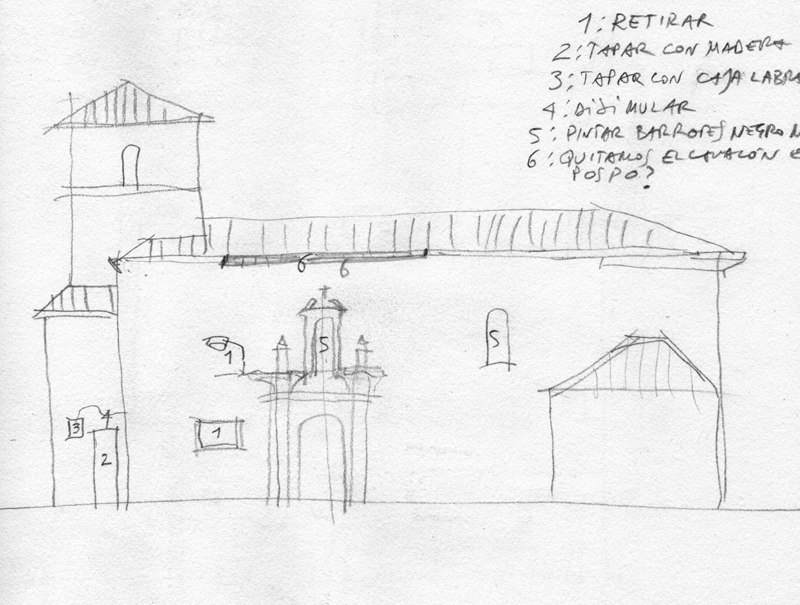 1: RETIRAR
2: TAPAR CON MADERA
3: TAPAR CON CAJA LABRA
4: DISIMULAR
5: PINTAR BARROTES NEGRO M
6: QUITAMOS EL CANALÓN E
POSPO?
6 6
5
5
1
1
3
4
2